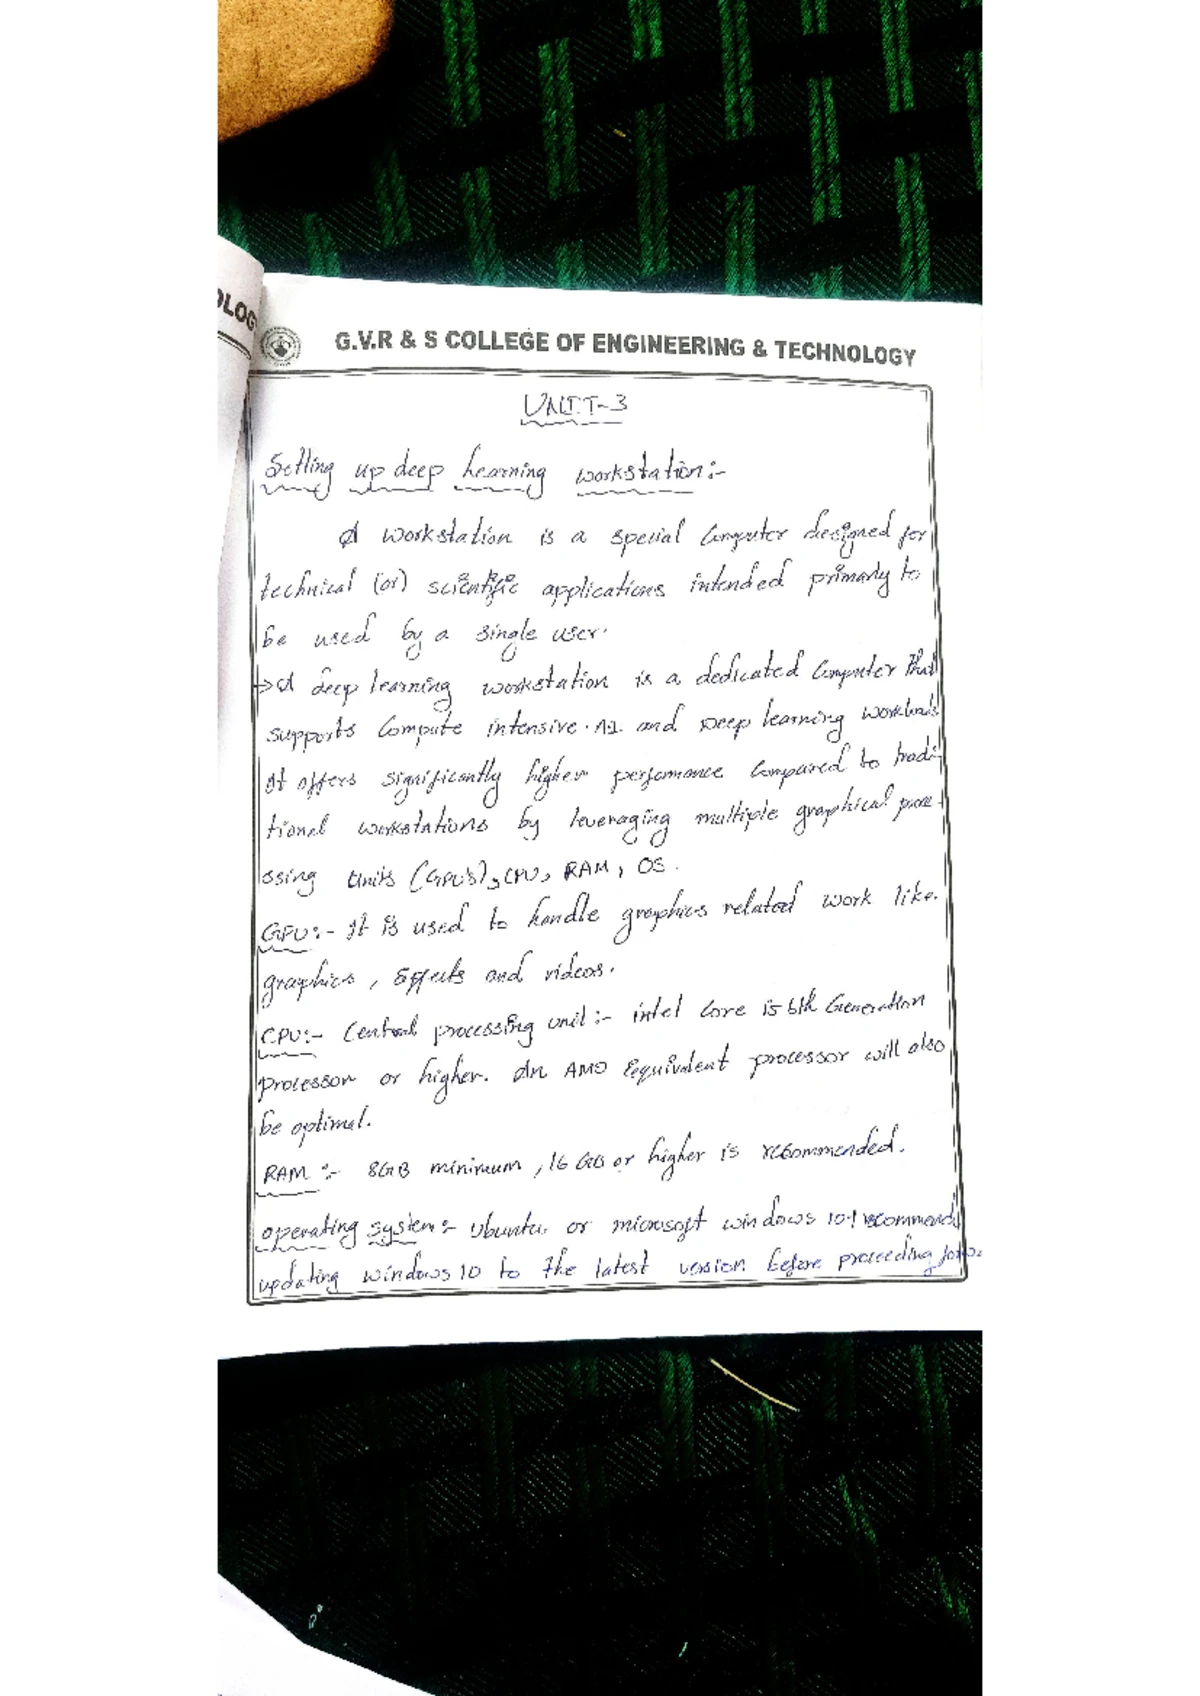 OLOG
G.V.R & S COLLEGE OF ENGINEERING & TECHNOLOGY
UNIT-3
Setting up deep learning workstation:-
A workstation is a special Computer designed for
technical (or) scientific applications intended primarly to
be used by a single user.
→ A deep learning workstation is a dedicated Computer that
supports Compute intensive AI and Deep learning workloads
It offers significantly higher performance Compared to tradi-
tional workstations by leveraging multiple graphical proce
ssing Units (GPU's), CPU, RAM, OS.
GPU:- It is used to handle graphics related work like.
graphics, Effects and videos.
CPU:- Central processing unit:- intel Core i5 6th Generation
processor or higher. An AMD Equivalent processor will also
be optimal.
RAM:- 8GB minimum, 16 GB or higher is recommended.
operating system:- Ubuntu or microsoft windows 10. I recommend
updating windows 10 to the latest version before proceeding